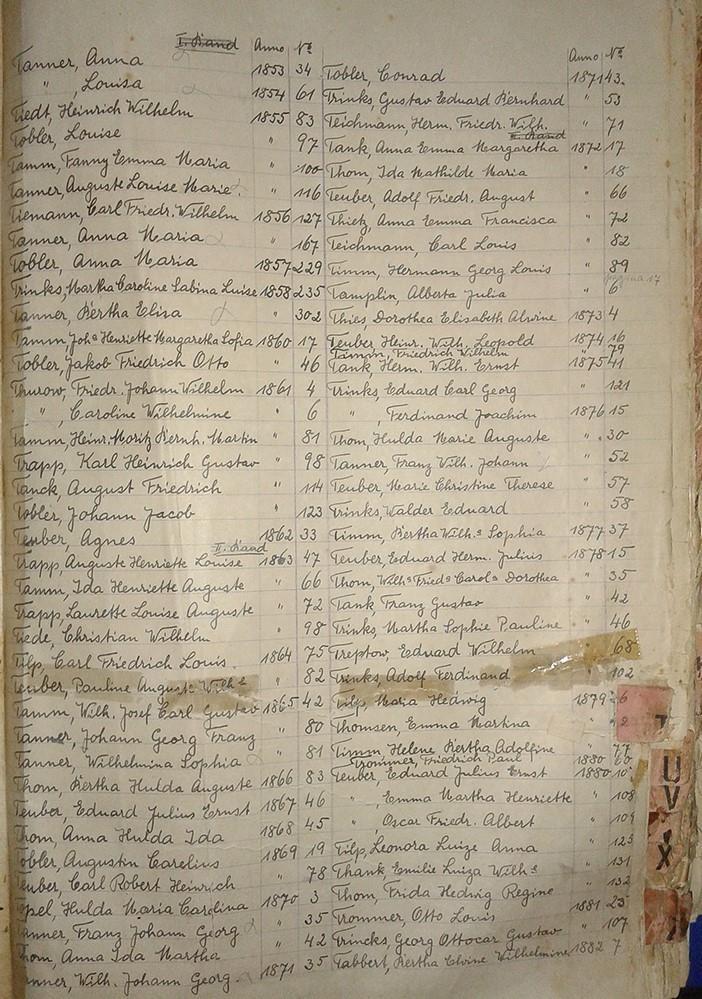 I. Band Anno No.
Tanner, Anna 1853 34
" , Louisa 1854 61
Tiedt, Heinrich Wilhelm 1855 83
Tobler, Louise " 97
Tamm, Fanny Emma Maria " 100
Tanner, Auguste Louise Marie " 116
Tiemann, Carl Friedr. Wilhelm 1856 127
Tanner, Anna Maria " 167
Tobler, Anna Maria 1857 229
Trinks, Martha Caroline Sabina Luise 1858 235
Tanner, Bertha Elisa " 302
Tamm, Joha Henriette Margaretha Sofia 1860 17
Tobler, Jakob Friedrich Otto " 46
Thurow, Friedr. Johann Wilhelm 1861 4
" , Caroline Wilhelmine " 6
Tamm, Heinr. Moritz Bernh. Martin " 81
Trapp, Karl Heinrich Gustav " 98
Tanck, August Friedrich " 114
Tobler, Johann Jacob " 123
Teuber, Agnes 1862 33
II. Band
Trapp, Auguste Henriette Louise 1863 47
Tamm, Ida Henriette Auguste " 66
Trapp, Laurette Louise Auguste " 72
Tiede, Christian Wilhelm " 98
Tilp, Carl Friedrich Louis 1864 75
Teuber, Pauline Auguste Wilhe " 82
Tamm, Wilh. Josef Carl Gustav 1865 42
Tanner, Johann Georg Franz " 80
Tanner, Wilhelmina Sophia " 81
Thom, Bertha Hulda Auguste 1866 83
Teuber, Eduard Julius Ernst 1867 46
Thom, Anna Hulda Ida 1868 45
Tobler, Augustin Carelius 1869 19
Teuber, Carl Robert Heinrich " 78
Hulda Maria Carolina 1870 3
Tanner, Franz Johann Georg " 35
Thom, Anna Ida Martha " 42
Tanner, Wilh. Johann Georg 1871 35
Anno No.
Tobler, Conrad 1871 43.
Trinks, Gustav Eduard Bernhard " 53
Teichmann, Herm. Friedr. Wilh. " 71
II. Band
Tank, Anna Emma Margaretha 1872 17
Thom, Ida Mathilde Maria " 18
Teuber, Adolf Friedr. August " 66
Thietz, Anna Emma Francisca " 72
Teichmann, Carl Louis " 82
Timm, Hermann Georg Louis " 89
pagina 17
Tamplin, Alberta Julia " 6
Thies, Dorothea Elisabeth Alwine 1873 4
Teuber, Heinr. Wilh. Leopold 1874 16
Timm, Friedrich Wilhelm " 79
Tank, Herm. Wilh. Ernst 1875 41
Trinks, Eduard Carl Georg " 121
" , Ferdinand Joachim 1876 15
Thom, Hulda Marie Auguste " 30
Tanner, Franz Wilh. Johann " 52
Teuber, Marie Christine Therese " 57
Trinks, Walder Eduard " 58
Timm, Bertha Wilha Sophia 1877 37
Teuber, Eduard Herm. Julius 1878 15
Thom, Wilha Frieda Carola Dorothea " 35
Tank, Franz Gustav " 42
Trinks, Martha Sophie Pauline " 46
Treptow, Eduard Wilhelm 68
Trinks, Adolf Ferdinand 102
Tilp, Maria Hedwig 1879 26
Thomsen, Emma Martina "
Timm Helene Bertha Adolfine " 77
Trommer, Friedrich Paul 1880 60
Teuber, Eduard Julius Ernst 1880
" , Emma Martha Henriette " 108
" , Oscar Friedr. Albert " 109
Tilp, Leonora Luize Anna " 123
Thank, Emilie Luiza Wilhe " 131
Thom, Frida Hedwig Regine " 132
Trommer, Otto Louis 1881 23
Trincks, Georg Ottocar Gustav " 107
Tabbert, Bertha Elvine Wilhelmine 1882 7
T
U
V
X